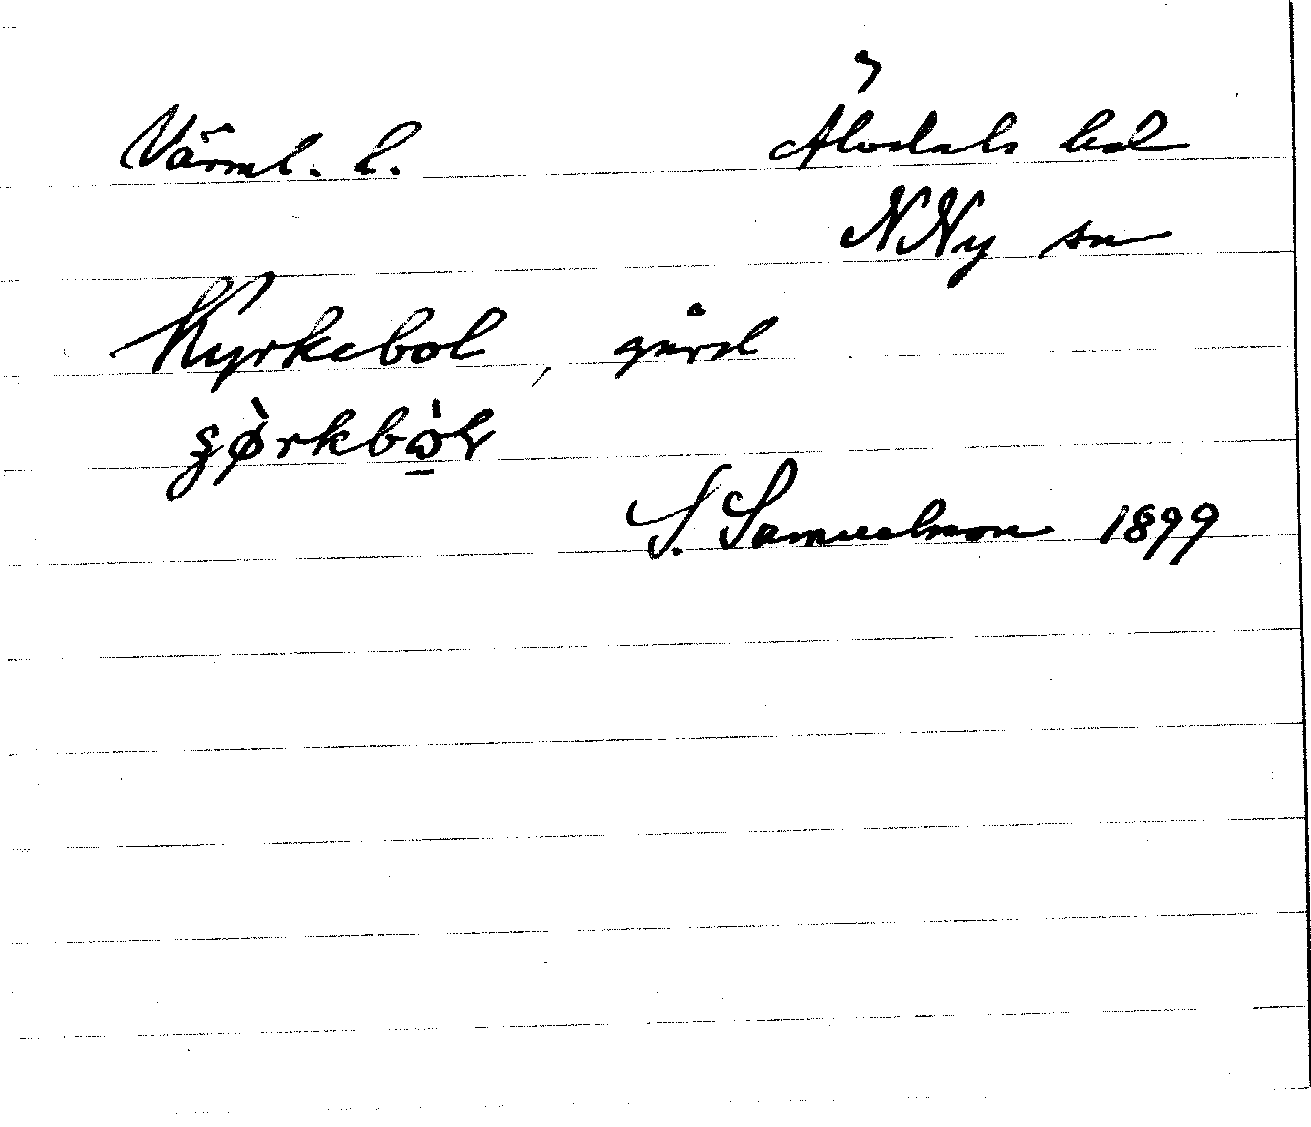 Värml. l.
Älvdals hd
N Ny sn
Kyrkebol, gård
S. Samuelsson 1899